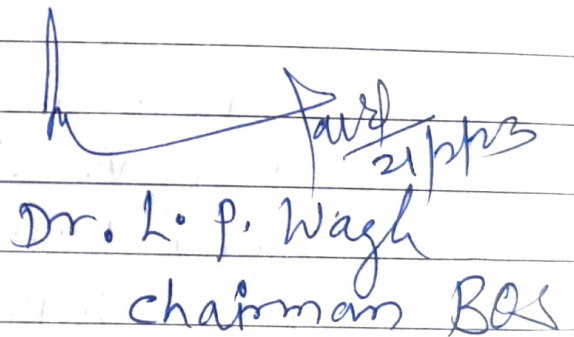 21/2/23
Dr. L. P. Wagh
Chairman BOS